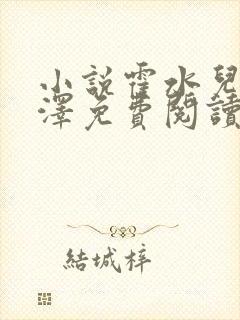 小說霍水兒
澤免費閱讀
結城梓